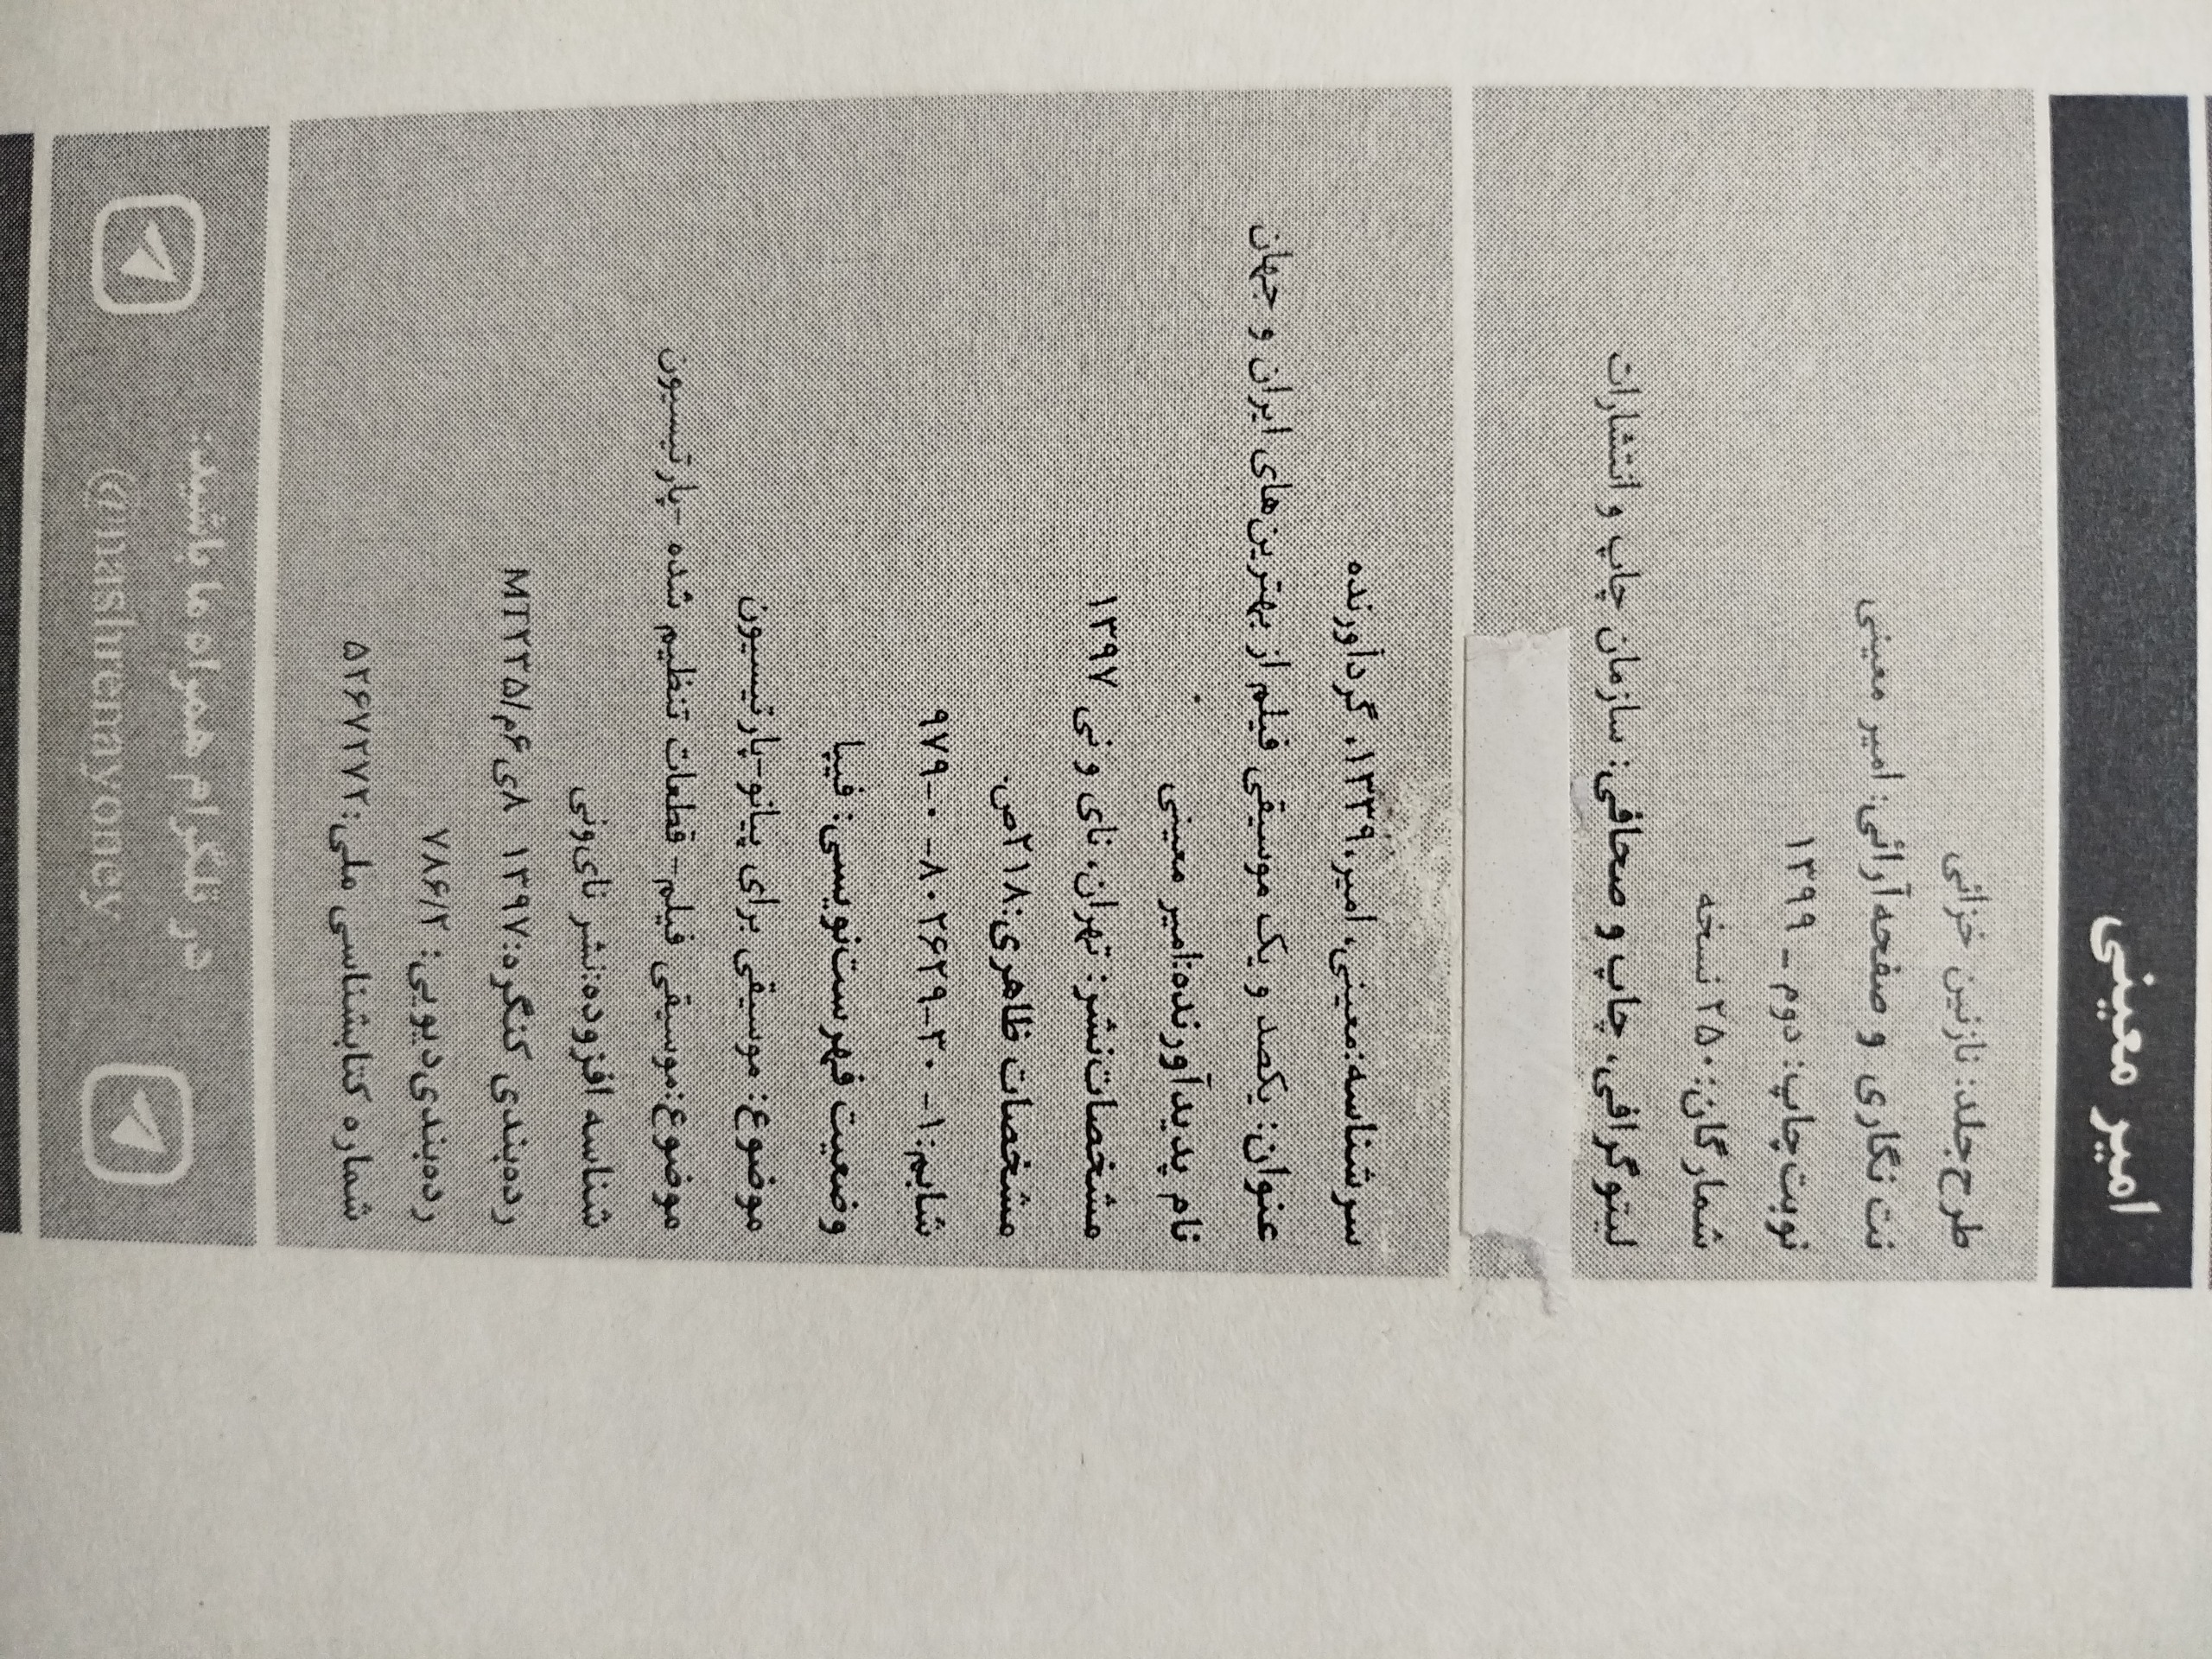 امیر معینی
طرح جلد: نازنین خزائی
نت نگاری و صفحه آرائی: امیر معینی
نوبت چاپ: دوم ـ ۱۳۹۹
شمارگان: ۲۵۰ نسخه
لیتوگرافی، چاپ و صحافی: سازمان چاپ و انتشارات
سرشناسه:معینی، امیر،۱۳۳۹، گردآورنده
عنوان: یکصد و یک موسیقی فیلم از بهترین‌های ایران و جهان
نام پدیدآورنده:امیر معینی
مشخصات‌نشر: تهران، نای و نی ۱۳۹۷
مشخصات ظاهری:۲۱۸ص.
شابم:۱- ۳۰-۸۰۲۶۲۹- ۰-۹۷۹
وضعیت فهرست‌نویسی: فیپا
موضوع: موسیقی برای پیانو-پارتیسیون
موضوع:موسیقی فیلم- قطعات تنظیم شده -پارتیسیون
شناسه افزوده:نشر نای‌ونی
رده‌بندی کنگره:۱۳۹۷ ۸ی۶م/MT۲۳۵
رده‌بندی‌دیویی: ۷۸۶/۲
شماره کتابشناسی ملی:۵۲۶۷۲۷۲
در تلگرام همراه ما باشید:
@nashrenayoney